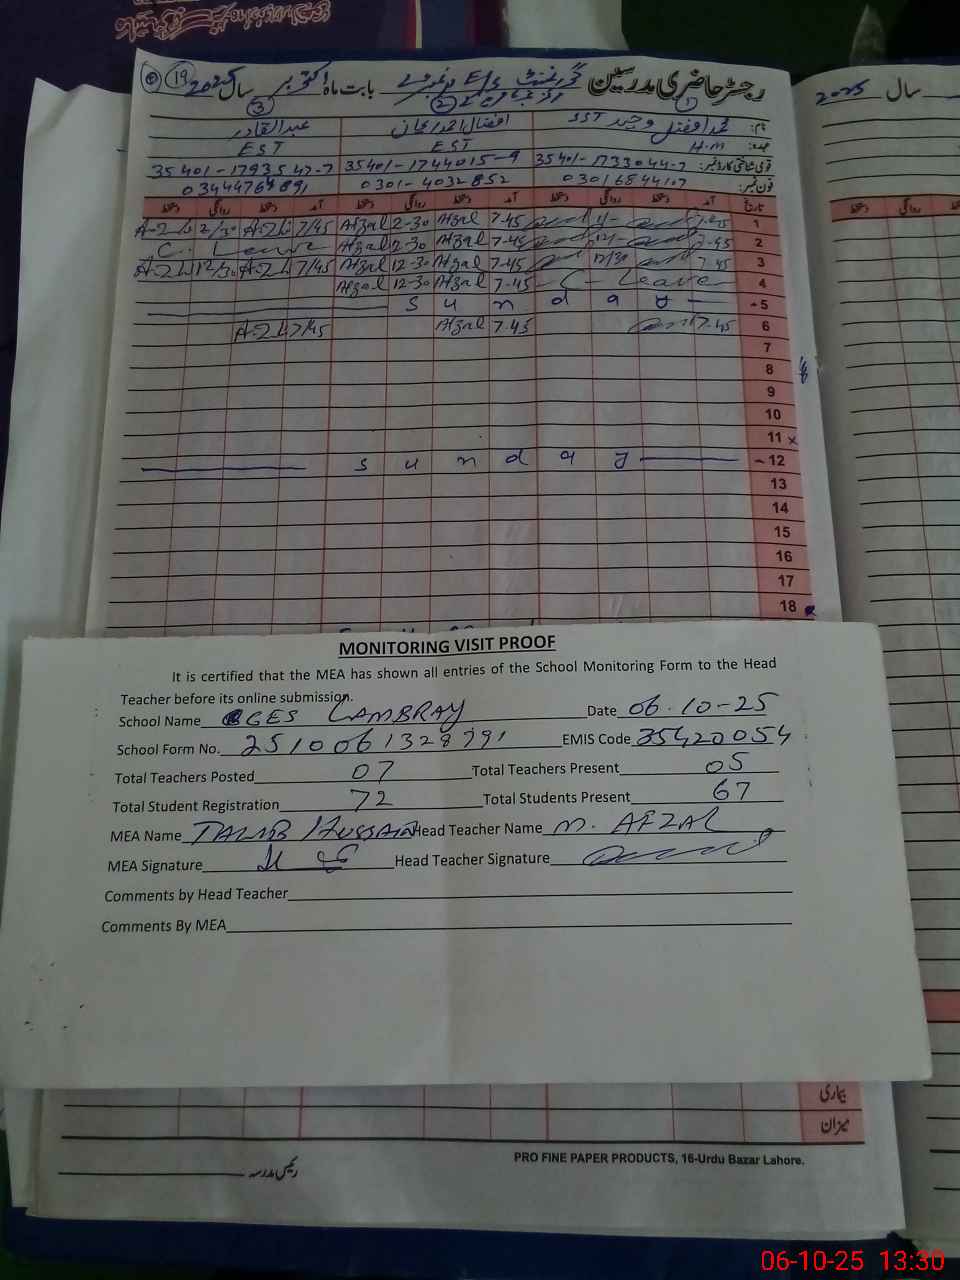 رجسٹر حاضری مدرسین گورنمنٹ بابت ماہ اکتوبر سال 2025
19
1 2 3
نام: محمد افضل وحید SST افضال احمد خان عبدالقادر
عہدہ: H.M EST EST
قومی شناختی کارڈ نمبر: 35401-1733044-7 35401-1744015-9 35401-1793547-7
فون نمبر: 03016544107 0301-4032852 03444764891
تاریخ آمد دستخط روانگی دستخط آمد دستخط روانگی دستخط آمد دستخط روانگی دستخط
1 7.45 7.45 Afzal 2-30 Afzal 7/45 2/30
2 7.45 7.45 Afzal 2-30 Afzal C. Leave
3 7.45 12/30 7.45 Afzal 12-30 Afzal 7/45 12/30
4 C - Leave 7.45 Afzal 12-30 Afzal
5 S u n d a y
6 7.45 7.45 Afzal 7/45
7
8
9
10
11 x
12 S u n d a y
13
14
15
16
17
18
سال 2025
دستخط روانگی دستخط
MONITORING VISIT PROOF
It is certified that the MEA has shown all entries of the School Monitoring Form to the Head
Teacher before its online submission.
School Name GES LAMBRAY Date 06-10-25
School Form No. 2510061328991 EMIS Code 35420054
Total Teachers Posted 07 Total Teachers Present 05
Total Student Registration 72 Total Students Present 67
MEA Name TALIB HUSSAIN Head Teacher Name M. AFZAL
MEA Signature Head Teacher Signature
Comments by Head Teacher
Comments By MEA
بیماری
میزان
PRO FINE PAPER PRODUCTS, 16-Urdu Bazar Lahore.
رئیس مدرسہ
06-10-25 13:30